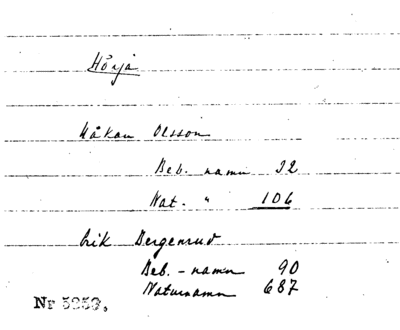 Hörja
Håkan Olsson
Beb. namn 32
Nat. " 106
Erik Bergenrud
Beb. - namn 90
Naturnamn 687
Nr 5253.